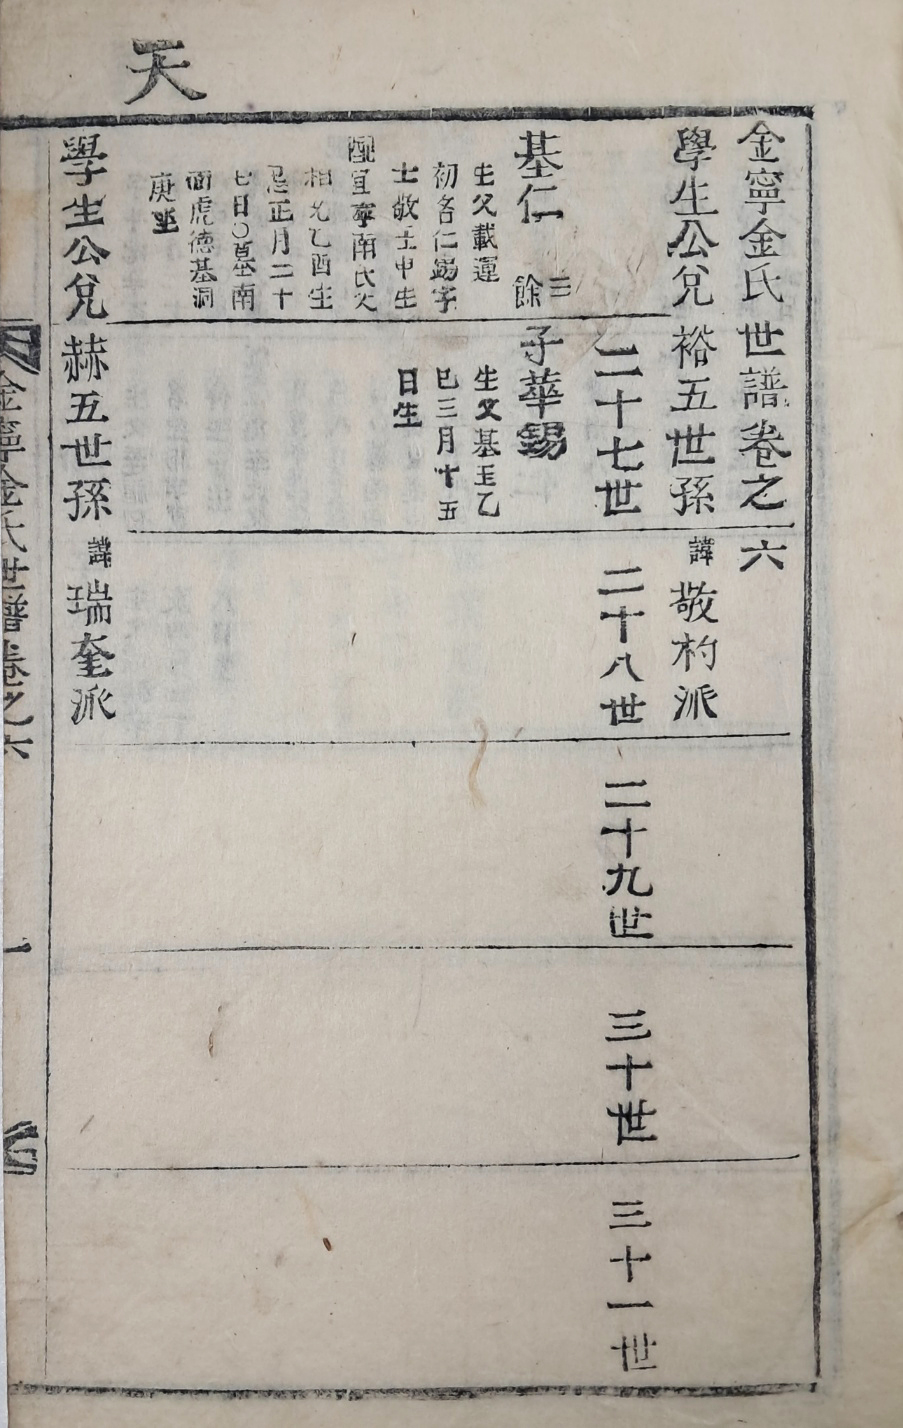 天
金寧金氏世譜卷之六
學生公兌裕五世孫諱敬杓派
二十七世
二十八世
二十九世
三十世
三十一世
基仁
三
餘
生父載運
初名仁錫字
士敬壬申生
配宜寧南氏父
相元乙酉生
忌正月二十
七日〇墓南
面虎德基洞
庚坐
子華錫
生父基玉乙
巳三月十五
日生
學生公兌赫五世孫諱瑞奎派
金寧金氏世譜卷之六
一